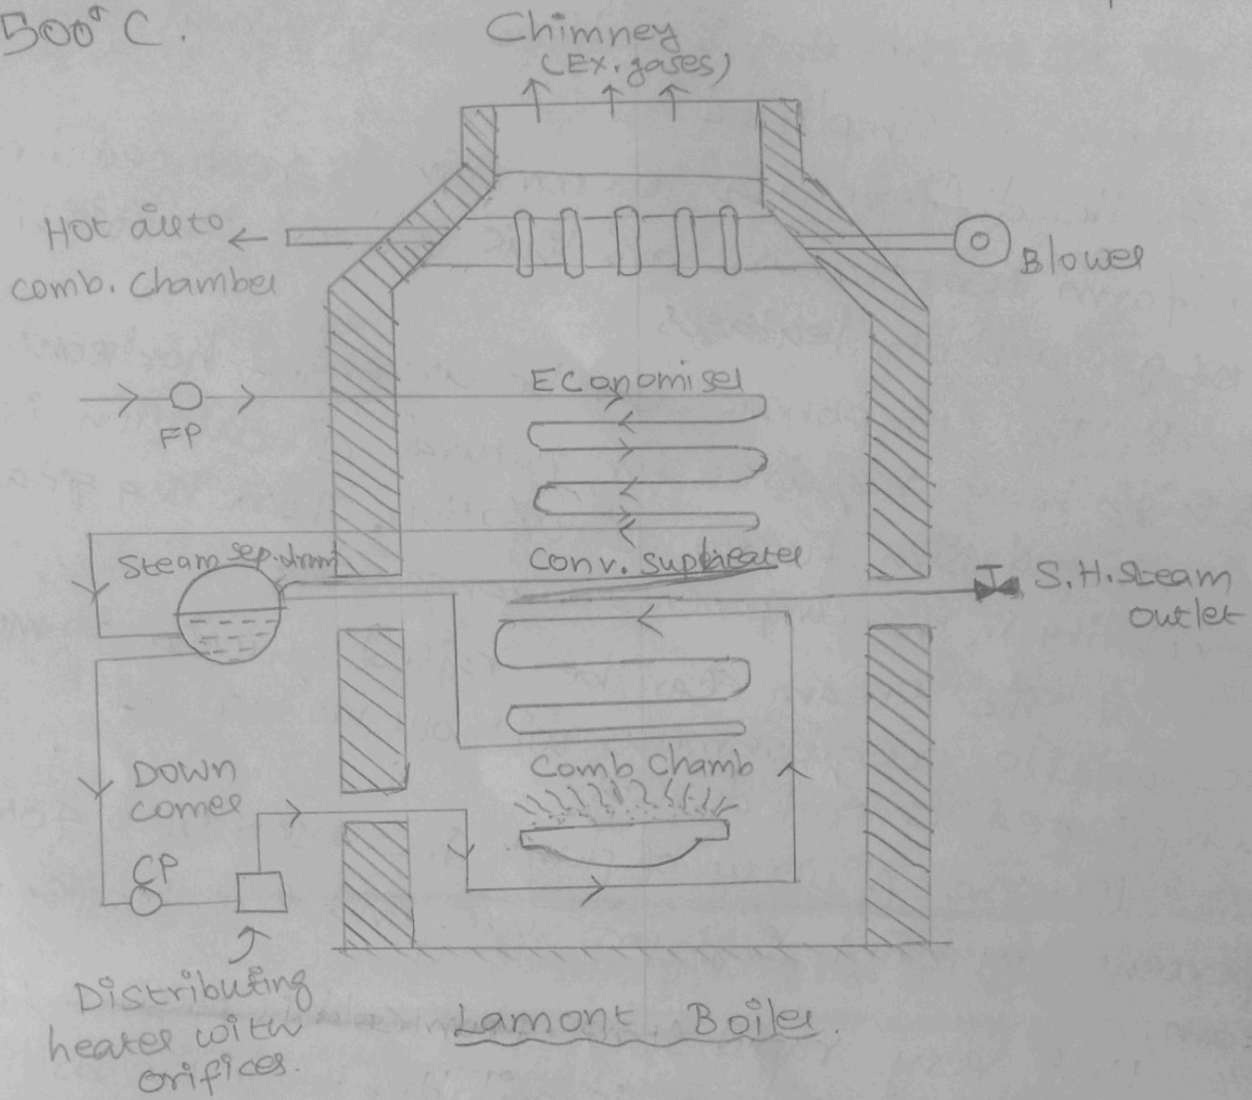 500°C.
Chimney
(EX. gases)
Hot air to
comb. Chamber
Blower
Economiser
FP
Steam sep. drum
Conv. supheater
S.H. Steam
outlet
Comb Chamb
Down
comer
CP
Distributing
header with
orifices.
Lamont Boiler.